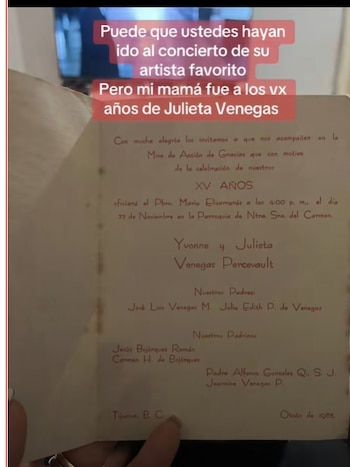 Puede que ustedes hayan
ido al concierto de su
artista favorito
Pero mi mamá fue a los vx
años de Julieta Venegas
Con mucha alegría los invitamos a que nos acompañen en la
Misa de Acción de Gracias que con motivo
de la celebración de nuestros
XV AÑOS
oficiará el Pbro. Mario Elizarrarás a las 4:00 p. m., el día
22 de Noviembre en la Parroquia de Ntra. Sra. del Carmen.
Yvonne y Julieta
Venegas Percevault
Nuestros Padres:
José Luis Venegas M. Julia Edith P. de Venegas
Nuestros Padrinos:
Jesús Bojórquez Román
Carmen H. de Bojórquez
Padre Alfonso González Q., S. J.
Jeannine Venegas P.
Tijuana, B. C.
Otoño de 1985.